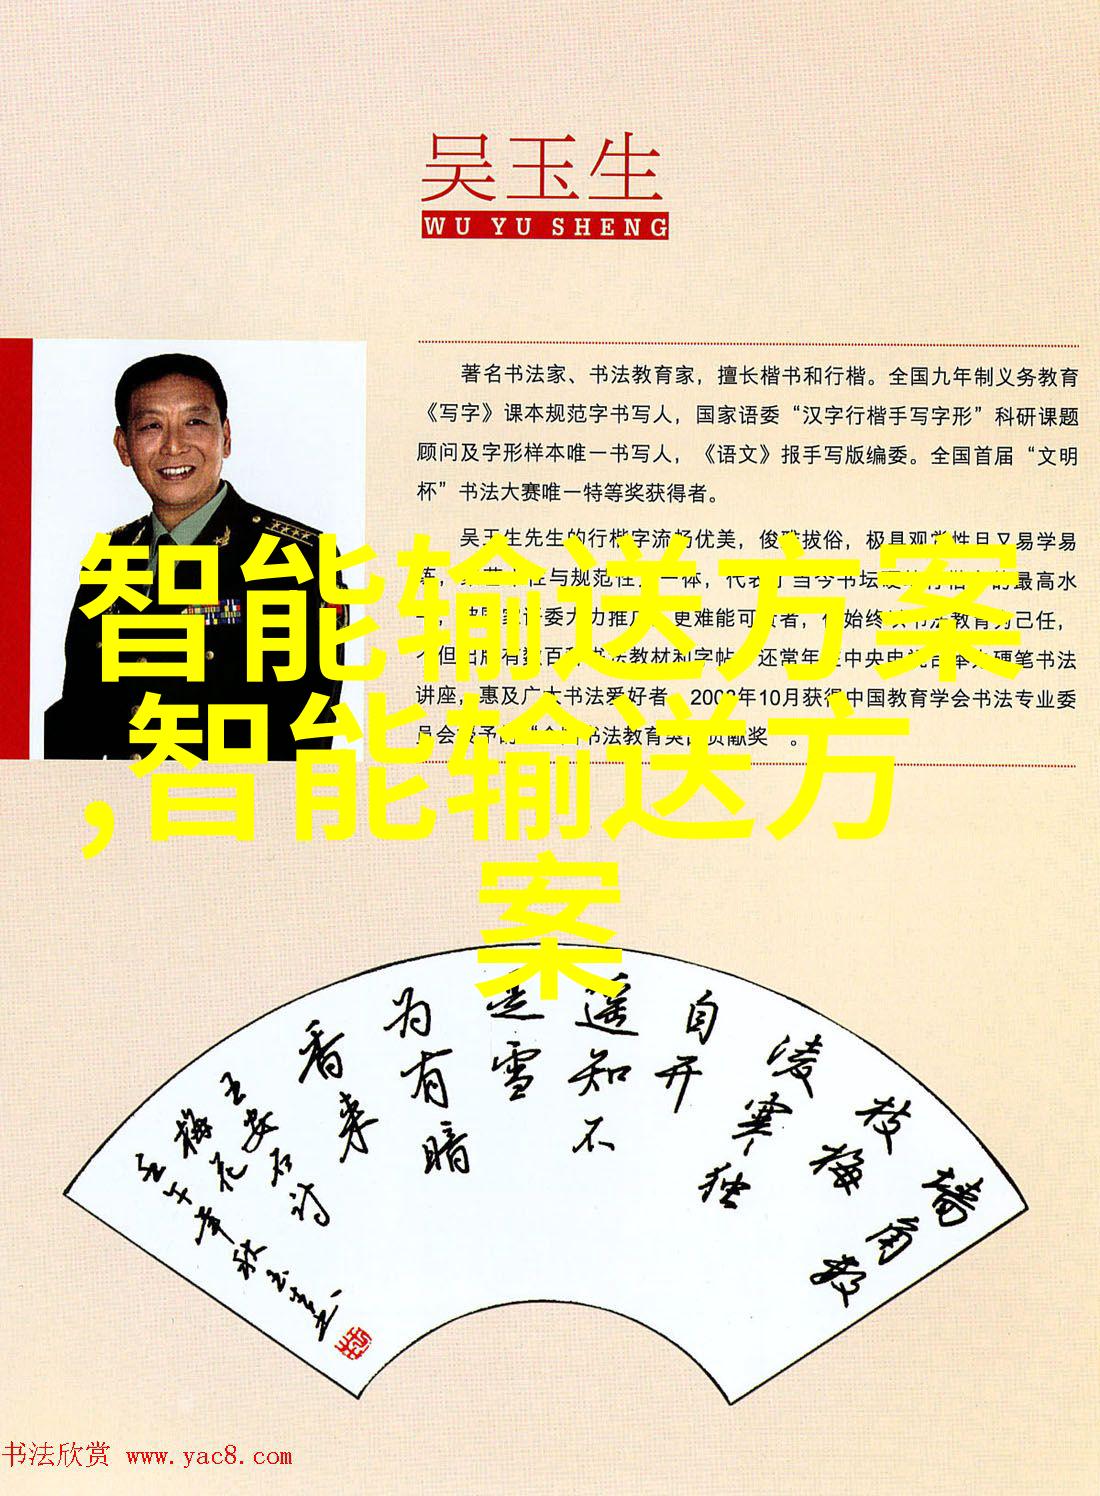 吴玉生
WU YU SHENG
著名书法家、书法教育家，擅长楷书和行楷。全国九年制义务教育
《写字》课本规范字书写人，国家语委“汉字行楷手写字形”科研课题
顾问及字形样本唯一书写人，《语文》报手写版编委。全国首届“文明
杯”书法大赛唯一特等奖获得者。
吴玉生先生的行楷字流畅优美，俊雅拔俗，极具观赏性且又易学易
性与规范性 一体，代表了当今书坛 最高水
语委大力推广 更难能可贵者， 始终以书法教育为己任，
但出版有数百种书法教材和字帖 还常年在中央电视台举办硬笔书法
讲座，惠及广大书法爱好者 年10月获得中国教育学会书法专业委
员会授予的 书法教育 贡献奖 。
智能输送方案
,智能输送方
案
墙角数
枝梅
凌寒独
自开
遥知不
是雪
为有暗
香来
王安石诗
梅花
壬午年秋玉生书
书法欣赏 www.yac8.com